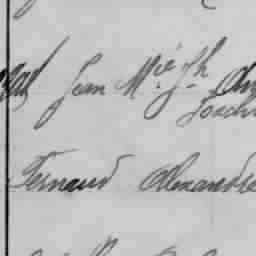 Jean M.ie Jh
Joach
Fernand Alexandre